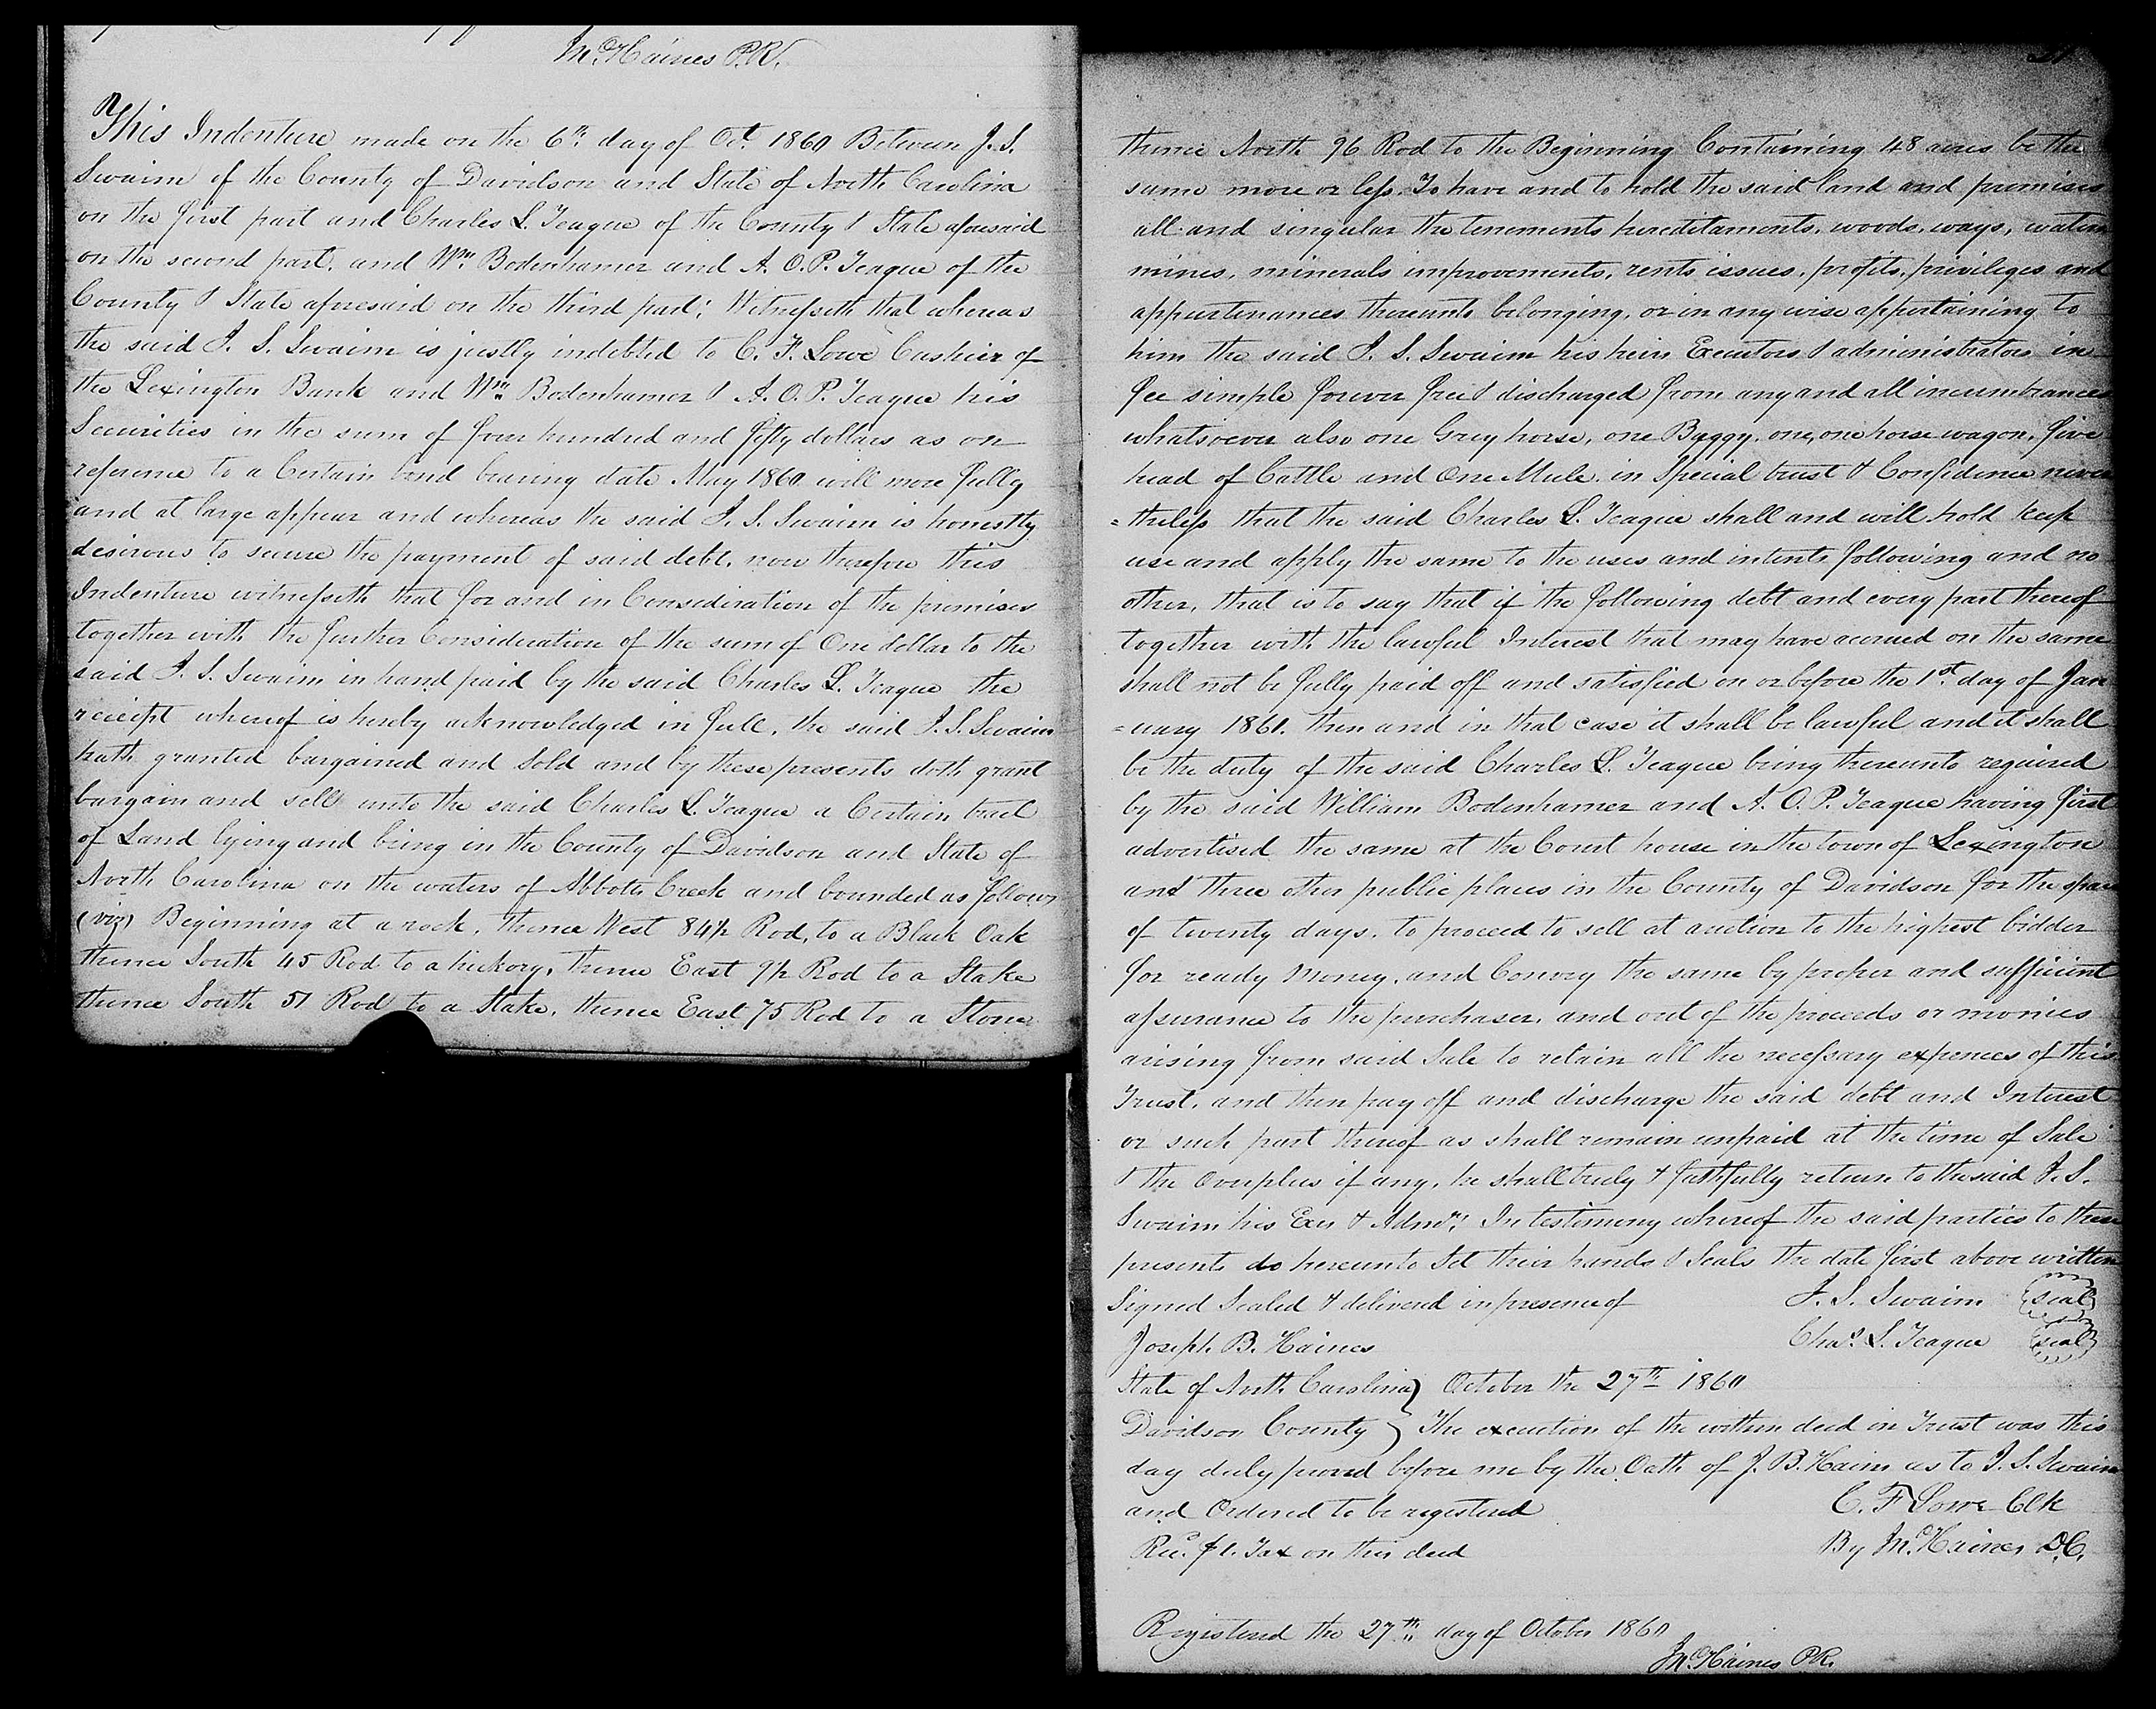 Jn.o Haines P.R.
This Indenture made on the 6th day of Oct. 1860 Between J. S.
Swaim of the County of Davidson and State of North Carolina
on the first part and Charles L. Teague of the County & State aforesaid
on the second part, and Wm. Bodenhamer and A. O. P. Teague of the
County & State aforesaid on the third part; Witnesseth that whereas
the said J. S. Swaim is justly indebted to C. F. Lowe Cashier of
the Lexington Bank and Wm. Bodenhamer & A. O. P. Teague his
Securities in the sum of four hundred and fifty dollars as on
reference to a Certain bond bearing date May 1860 will more fully
and at large appear and whereas the said J. S. Swaim is honestly
desirous to secure the payment of said debt, now therefore this
Indenture witnesseth that for and in Consideration of the premises
together with the further Consideration of the sum of One dollar to the
said J. S. Swaim in hand paid by the said Charles L. Teague the
receipt whereof is hereby acknowledged in full, the said J. S. Swaim
hath granted bargained and Sold and by these presents doth grant
bargain and sell unto the said Charles L. Teague a Certain tract
of Land lying and being in the County of Davidson and State of
North Carolina on the waters of Abbotts Creek and bounded as follows
(viz) Beginning at a rock, thence West 84½ Rod, to a Black Oak
thence South 45 Rod to a hickory, thence East 9½ Rod to a Stake
thence South 51 Rod to a Stake, thence East 75 Rod to a Stone
thence North 96 Rod to the Beginning Containing 48 acres be the
same more or less. To have and to hold the said land and premises
all and singular the tenements hereditaments, woods, ways, waters
mines, minerals improvements, rents issues, profits, privileges and
appurtinances thereunto belonging, or in any wise appertaining to
him the said J. S. Swaim his heirs Executors & administrators in
fee simple forever free & discharged from any and all incumbrances
whatsoever also one Grey horse, one Buggy, one, one horse wagon, five
head of Cattle and One Mule, in Special trust & Confidence never
=theless that the said Charles L. Teague shall and will hold keep
use and apply the same to the uses and intents following and no
other, that is to say that if the following debt and every part thereof
together with the lawful Interest that may have accrued on the same
shall not be fully paid off and satisfied on or before the 1st day of Jan
=uary 1861. then and in that case it shall be lawful and it shall
be the duty of the said Charles L. Teague being thereunto required
by the said William Bodenhamer and A. O. P. Teague having first
advertised the same at the Court house in the town of Lexington
and three other public places in the County of Davidson for the space
of twenty days, to proceed to sell at auction to the highest bidder
for ready Money, and Convey the same by proper and sufficient
assurance to the purchaser, and out of the proceeds or monies
arising from said Sale to retain all the necessary expences of this
Trust, and then pay off and discharge the said debt and Interest
or such part thereof as shall remain unpaid at the time of Sale
& the Overplus if any, he shall truly & faithfully return to the said J. S.
Swaim his Exrs & Admrs; In testimony whereof the said parties to these
presents do hereunto Set their hands & Seals the date first above written
Signed Sealed & delivered in presence of J. S. Swaim (seal)
Joseph B. Haines Chas. L. Teague (seal)
State of North Carolina } October the 27th 1860
Davidson County } The execution of the within deed in Trust was this
day duly proved before me by the Oath of J. B. Haines as to J. S. Swaim
and Ordered to be registered C. F. Lowe Clk
Rec.d $1. Tax on this deed By Jn.o Haines D.C.
Registered the 27th day of October 1860
Jn.o Haines P.R.